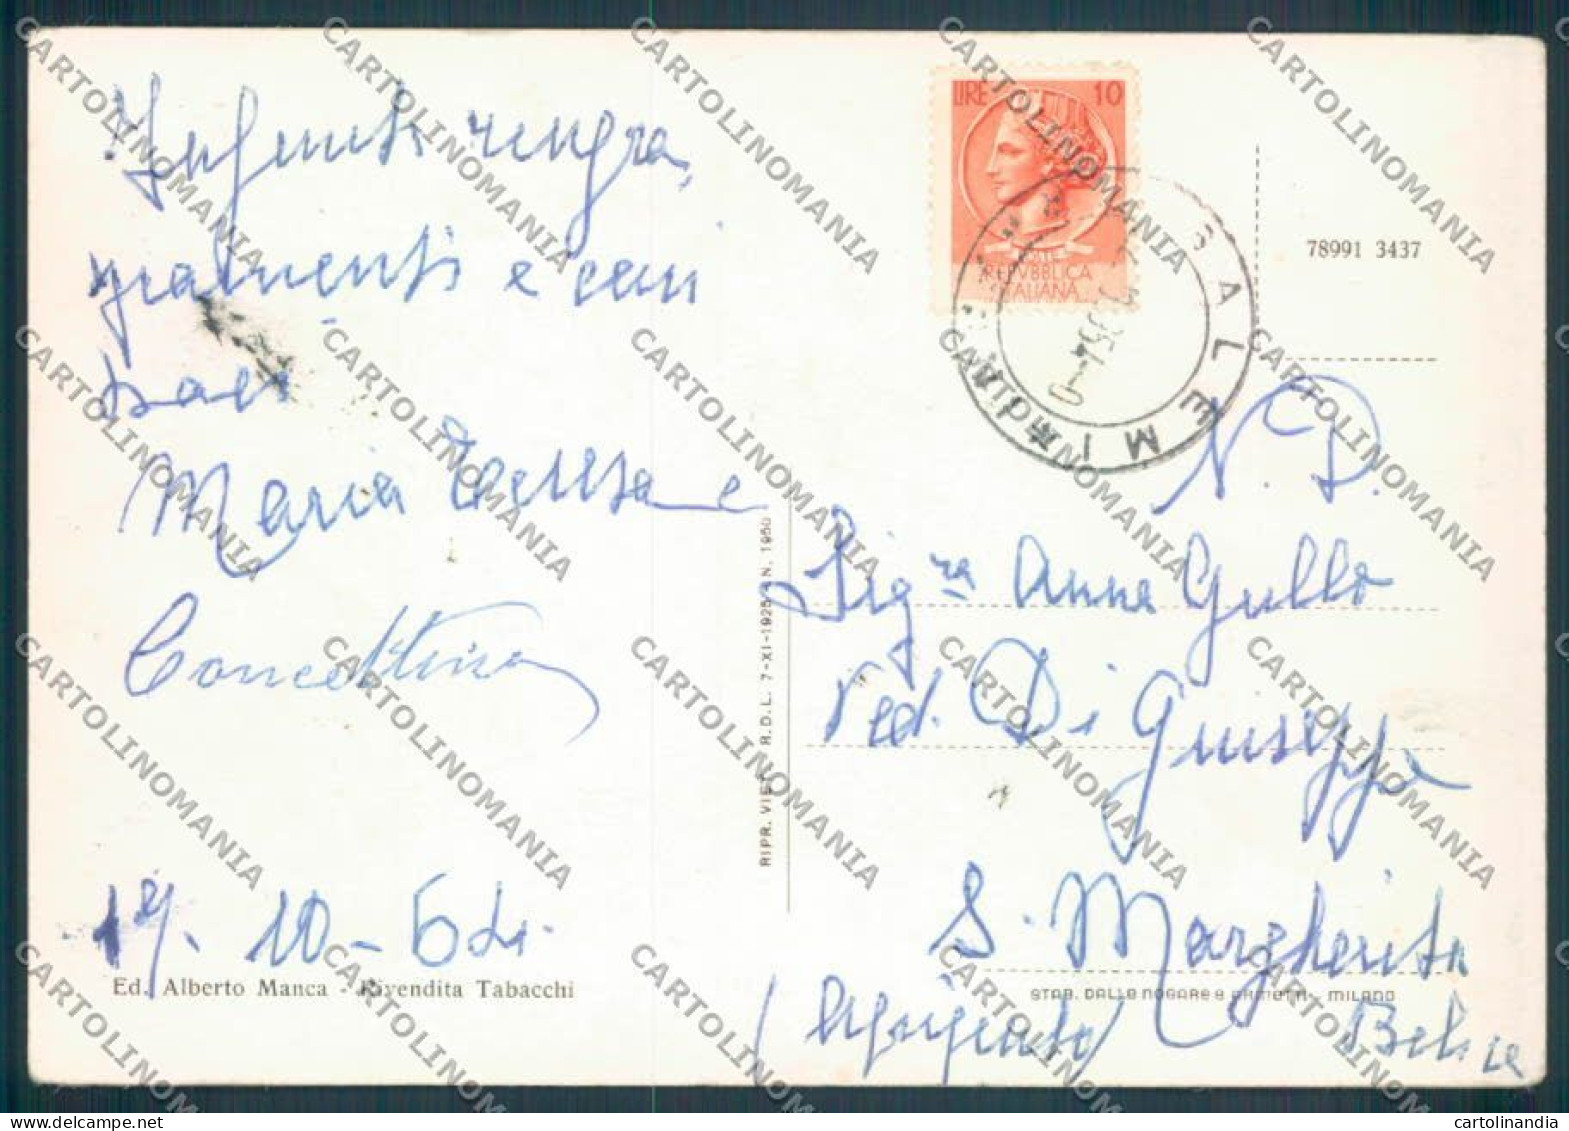 Infiniti ringra,
ziamenti e cari
baci
Maria Teresa e
Concettina
19. 10-64.
Ed. Alberto Manca - Rivendita Tabacchi
RIPR. VIET. R.D.L. 7-XI-1925 N. 1950
LIRE 10
REPVBBLICA
ITALIANA
SALEMI
78991 3437
N. D.
Sig.ra Anna Gullo
Ved. Di Giuseppe
S. Margherita
Belice
(Agrigento)
STAB. DALLE NOGARE E ARMETTI - MILANO
CARTOLINOMANIA
cartolinandia